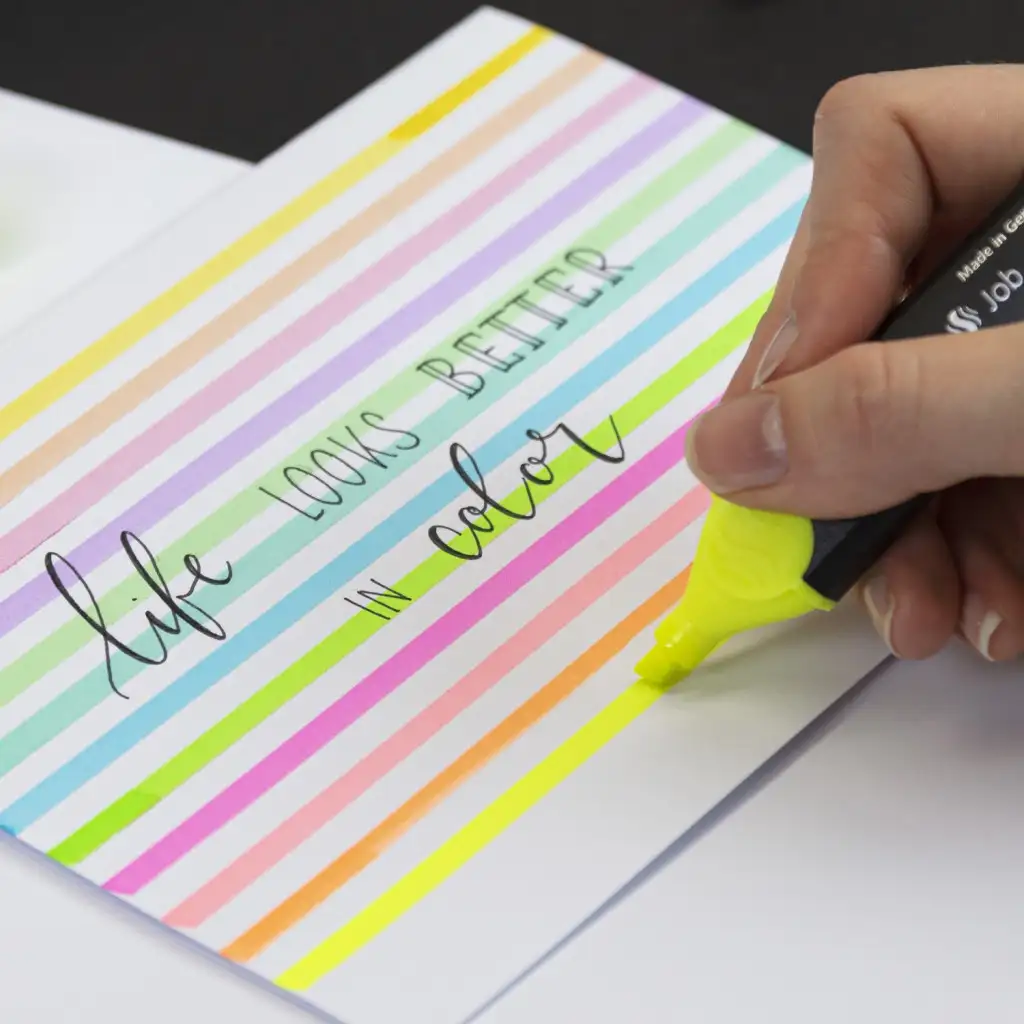 life LOOKS BETTER
IN color
Made in Ger
Job